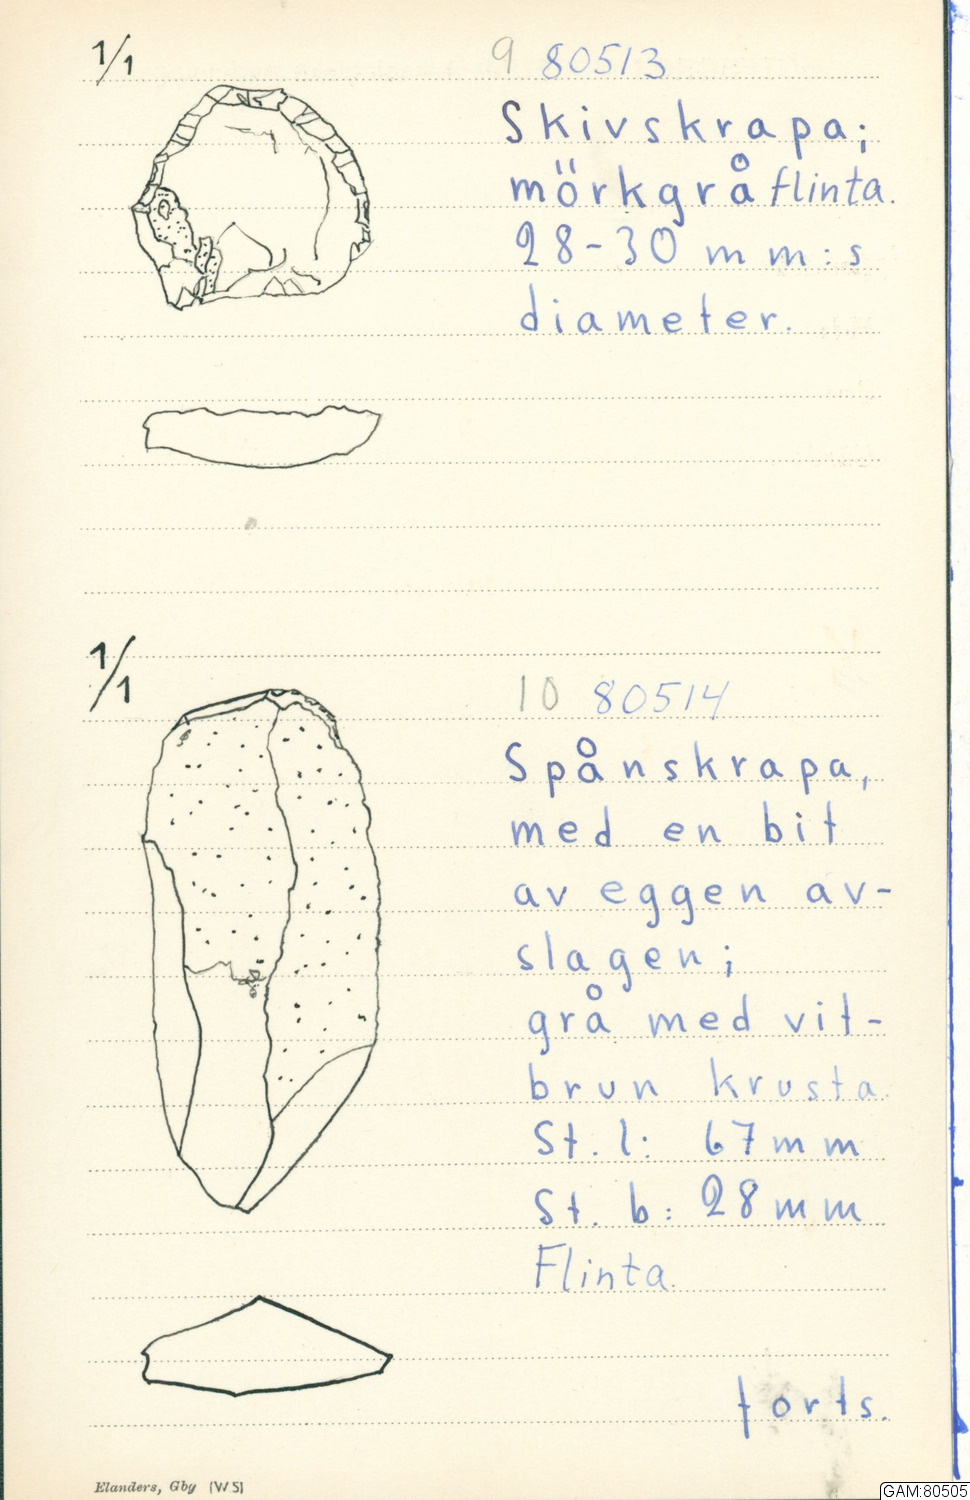 1/1
9 80513
Skivskrapa;
mörkgrå flinta.
28-30 mm:s
diameter.
1/1
10 80514
Spånskrapa,
med en bit
av eggen av-
slagen;
grå med vit-
brun krusta.
St. l: 67 mm
St. b: 28 mm
Flinta.
forts.
Elanders, Gby (W 5)
GAM:80505